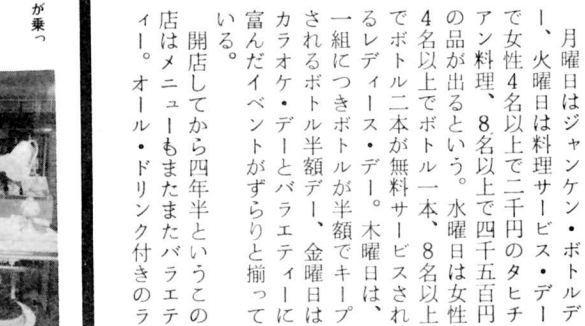 月曜日はジャンケン・ボトルデ
ー、火曜日は料理サービス・デー
で女性4名以上で二千円のタヒチ
アン料理、8名以上で四千五百円
の品が出るという。水曜日は女性
4名以上でボトル一本、8名以上
でボトル二本が無料サービスされ
るレディース・デー。木曜日は、
一組につきボトルが半額でキープ
されるボトル半額デー、金曜日は
カラオケ・デーとバラエティーに
富んだイベントがずらりと揃って
いる。
開店してから四年半というこの
店はメニューもまたまたバラエテ
ィー。オール・ドリンク付きのラ
が乗っ